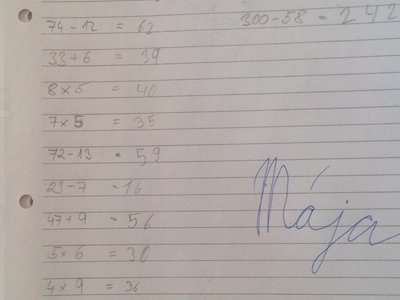 74 - 12 = 62
33 + 6 = 39
8 x 5 = 40
7 x 5 = 35
72 - 13 = 59
23 - 7 = 16
47 + 9 = 56
5 x 6 = 30
4 x 9 = 36
300 - 58 = 242
Mája